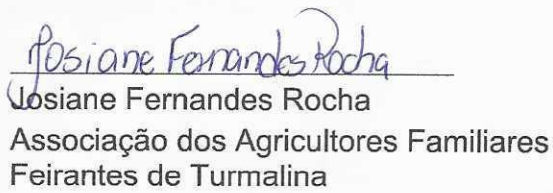 Josiane Fernandes Rocha
Josiane Fernandes Rocha
Associação dos Agricultores Familiares
Feirantes de Turmalina